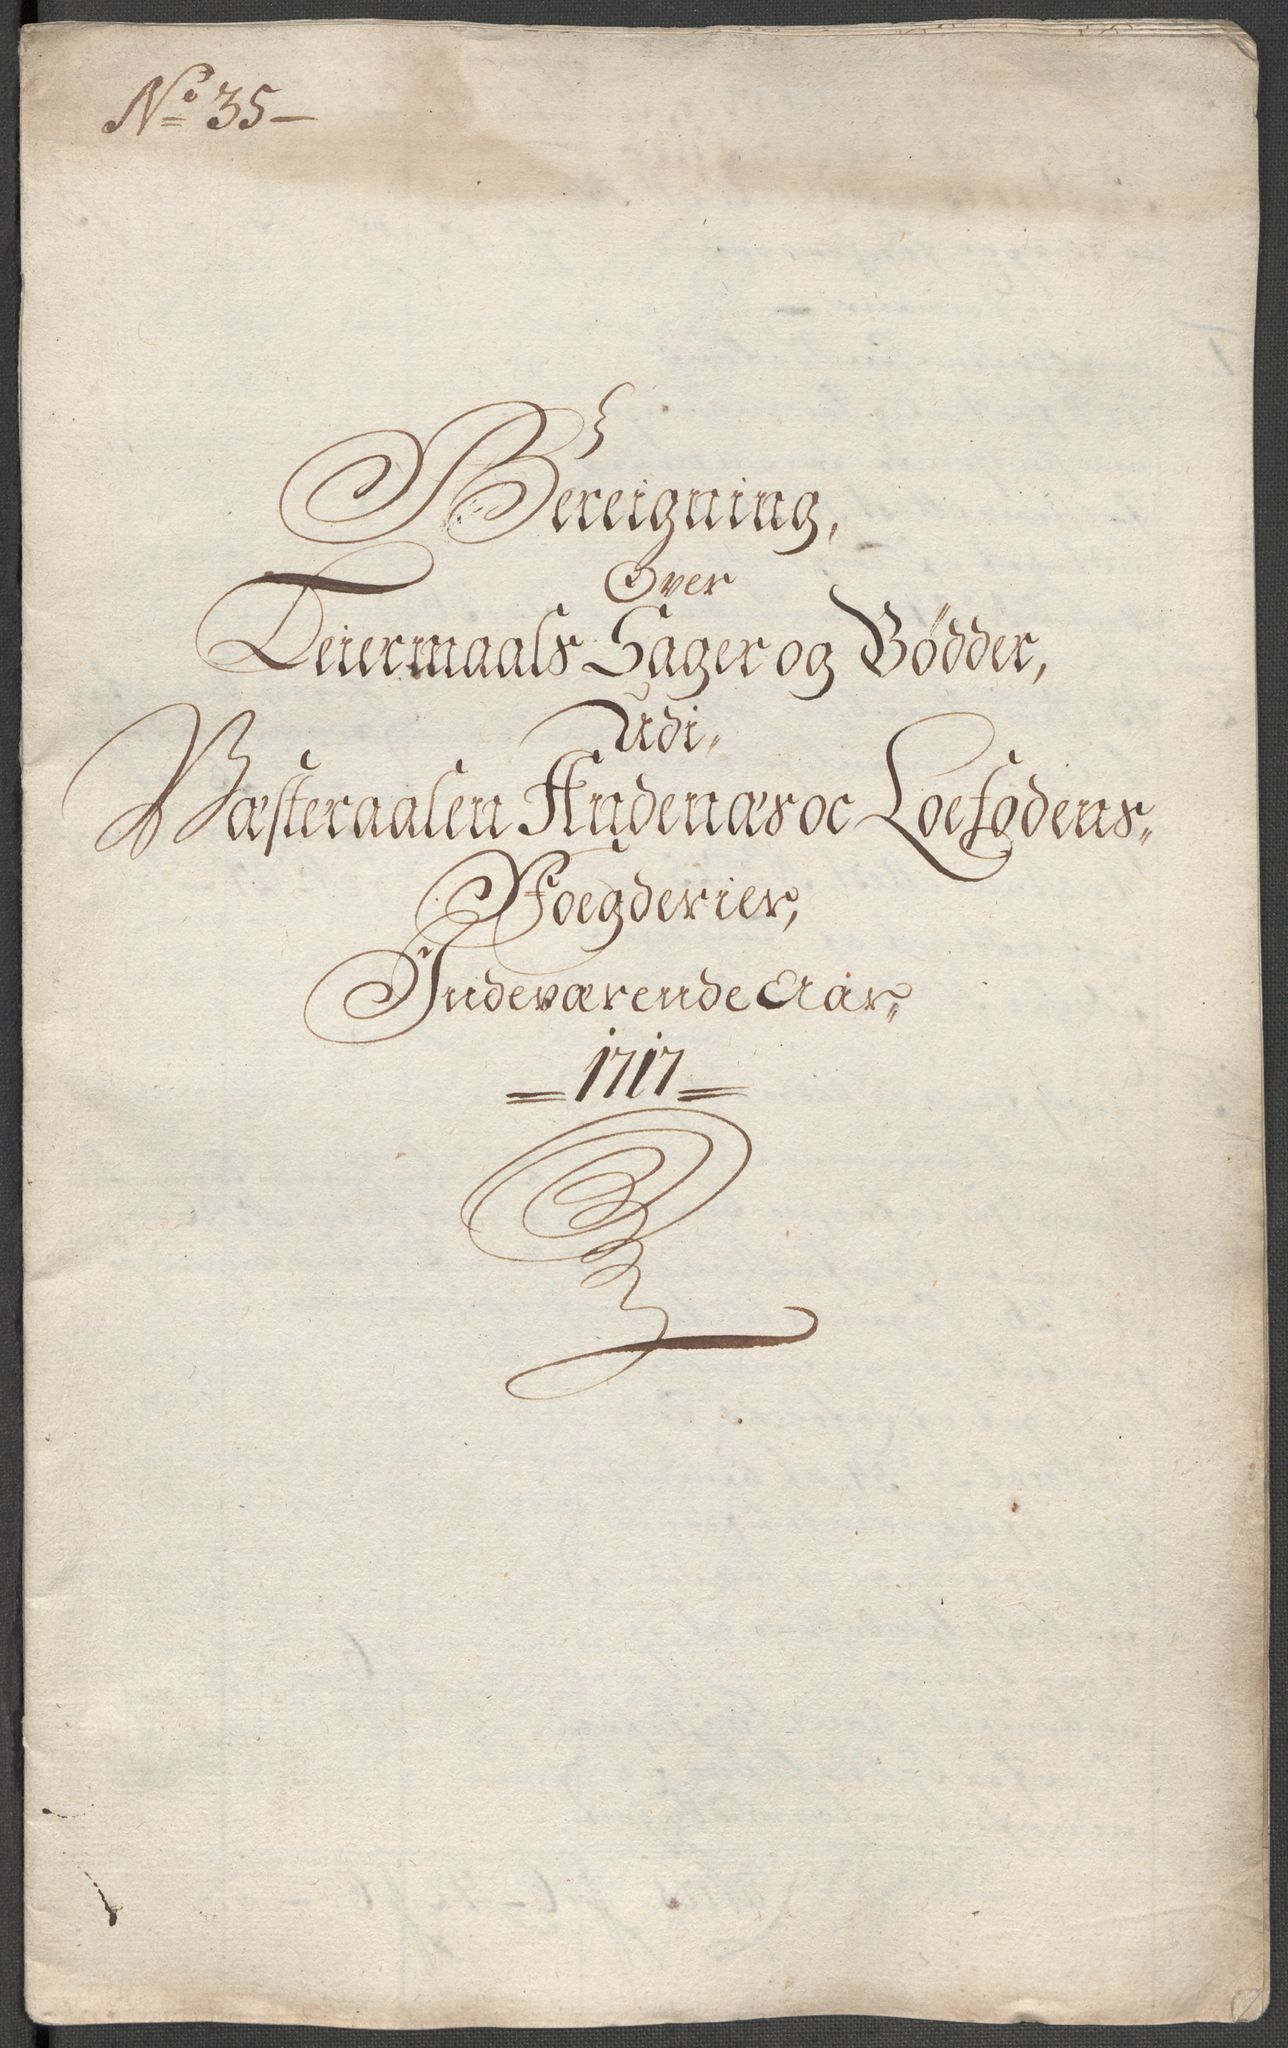 No 35-
Bereigning,
Over
Leiermaals Sager og Bødder,
Udi,
Væsteraalen Andenæs oc Loefodens
Foegderier,
Indeværende Aar,
1717